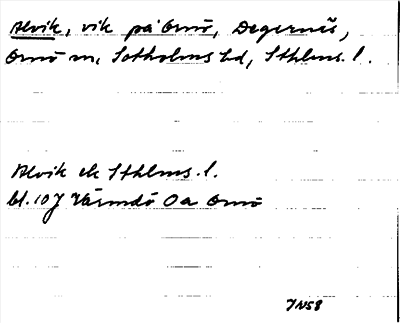 Alvik, vik på Ornö, Degernäs,
Ornö sn, Sotholms hd, Sthlms. l.
Alvik ek Sthlms. l.
bl. 107 Värmdö Oa Ornö
JNS8